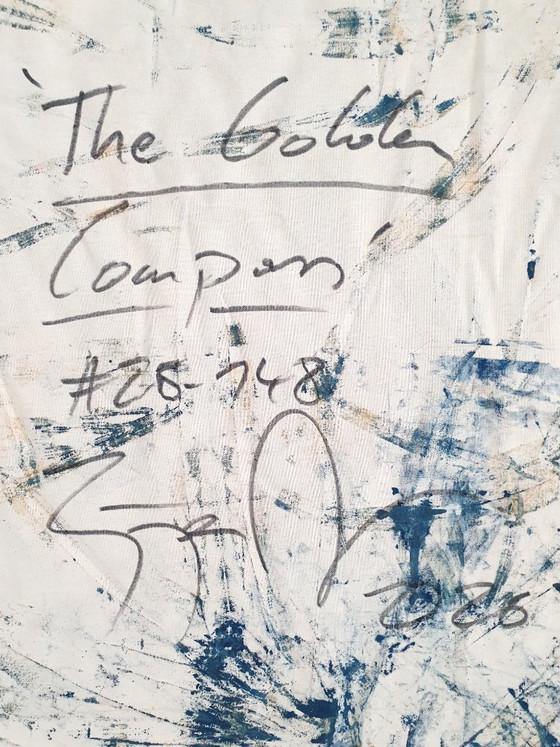 'The Golden
Compass'
#26-148
2026